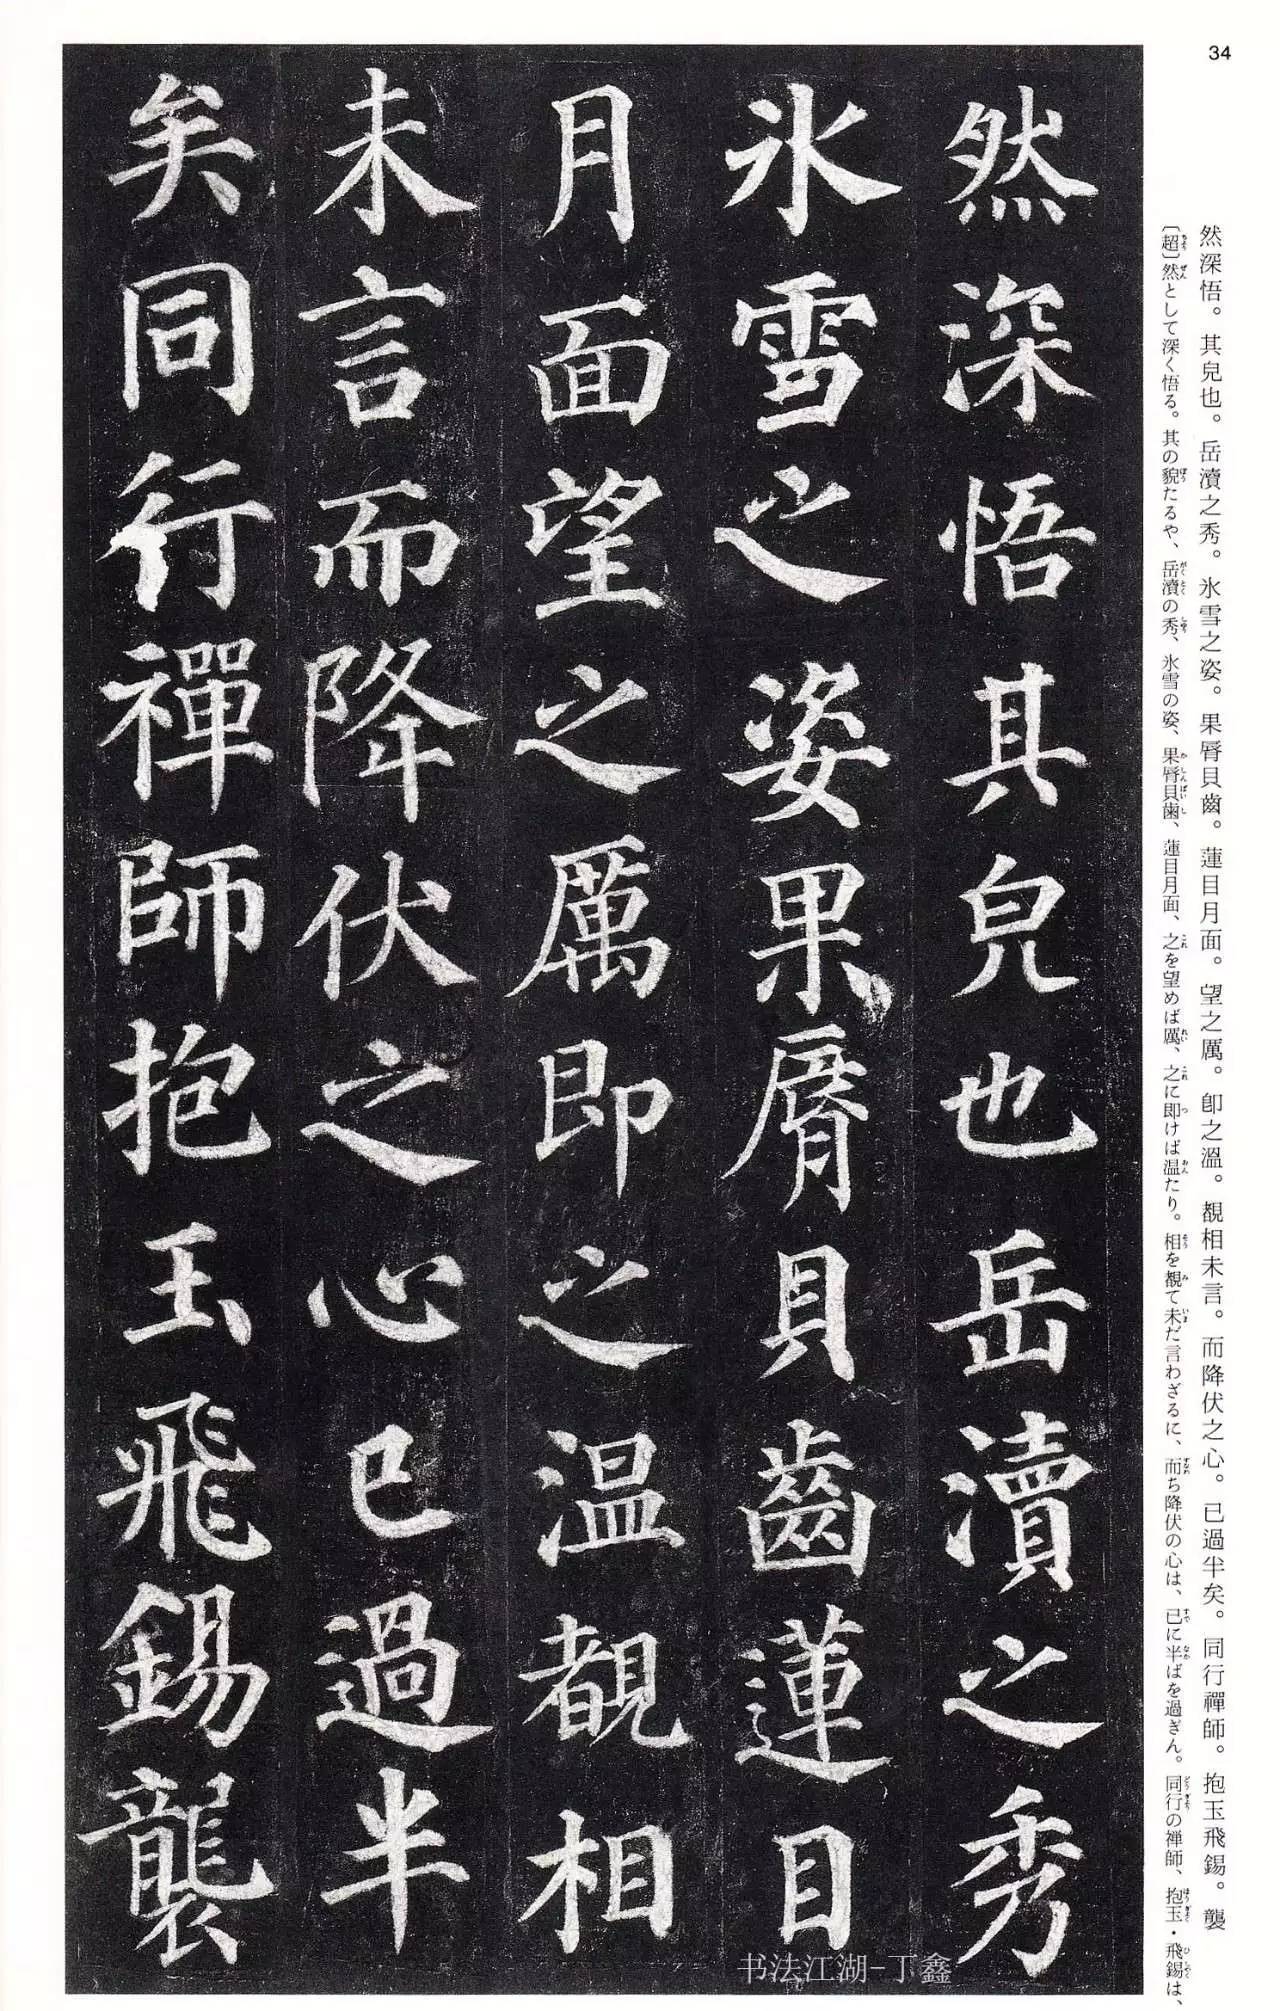 34
然深悟。其皃也。岳瀆之秀。氷雪之姿。果脣貝齒。蓮目月面。望之厲。卽之溫。覩相未言。而降伏之心。已過半矣。同行禪師。抱玉飛錫。襲
〔超〕然として深く悟る。其の貌たるや、岳瀆の秀、氷雪の姿、果脣貝歯、蓮目月面、之を望めば厲、之に即けば温たり。相を覩て未だ言わざるに、而ち降伏の心は、已に半ばを過ぎん。同行の禅師、抱玉・飛錫は、
然深悟其皃也岳瀆之秀
氷雪之姿果脣貝齒蓮目
月面望之厲即之温覩相
未言而降伏之心已過半
矣同行禪師抱玉飛錫襲
书法江湖-丁鑫